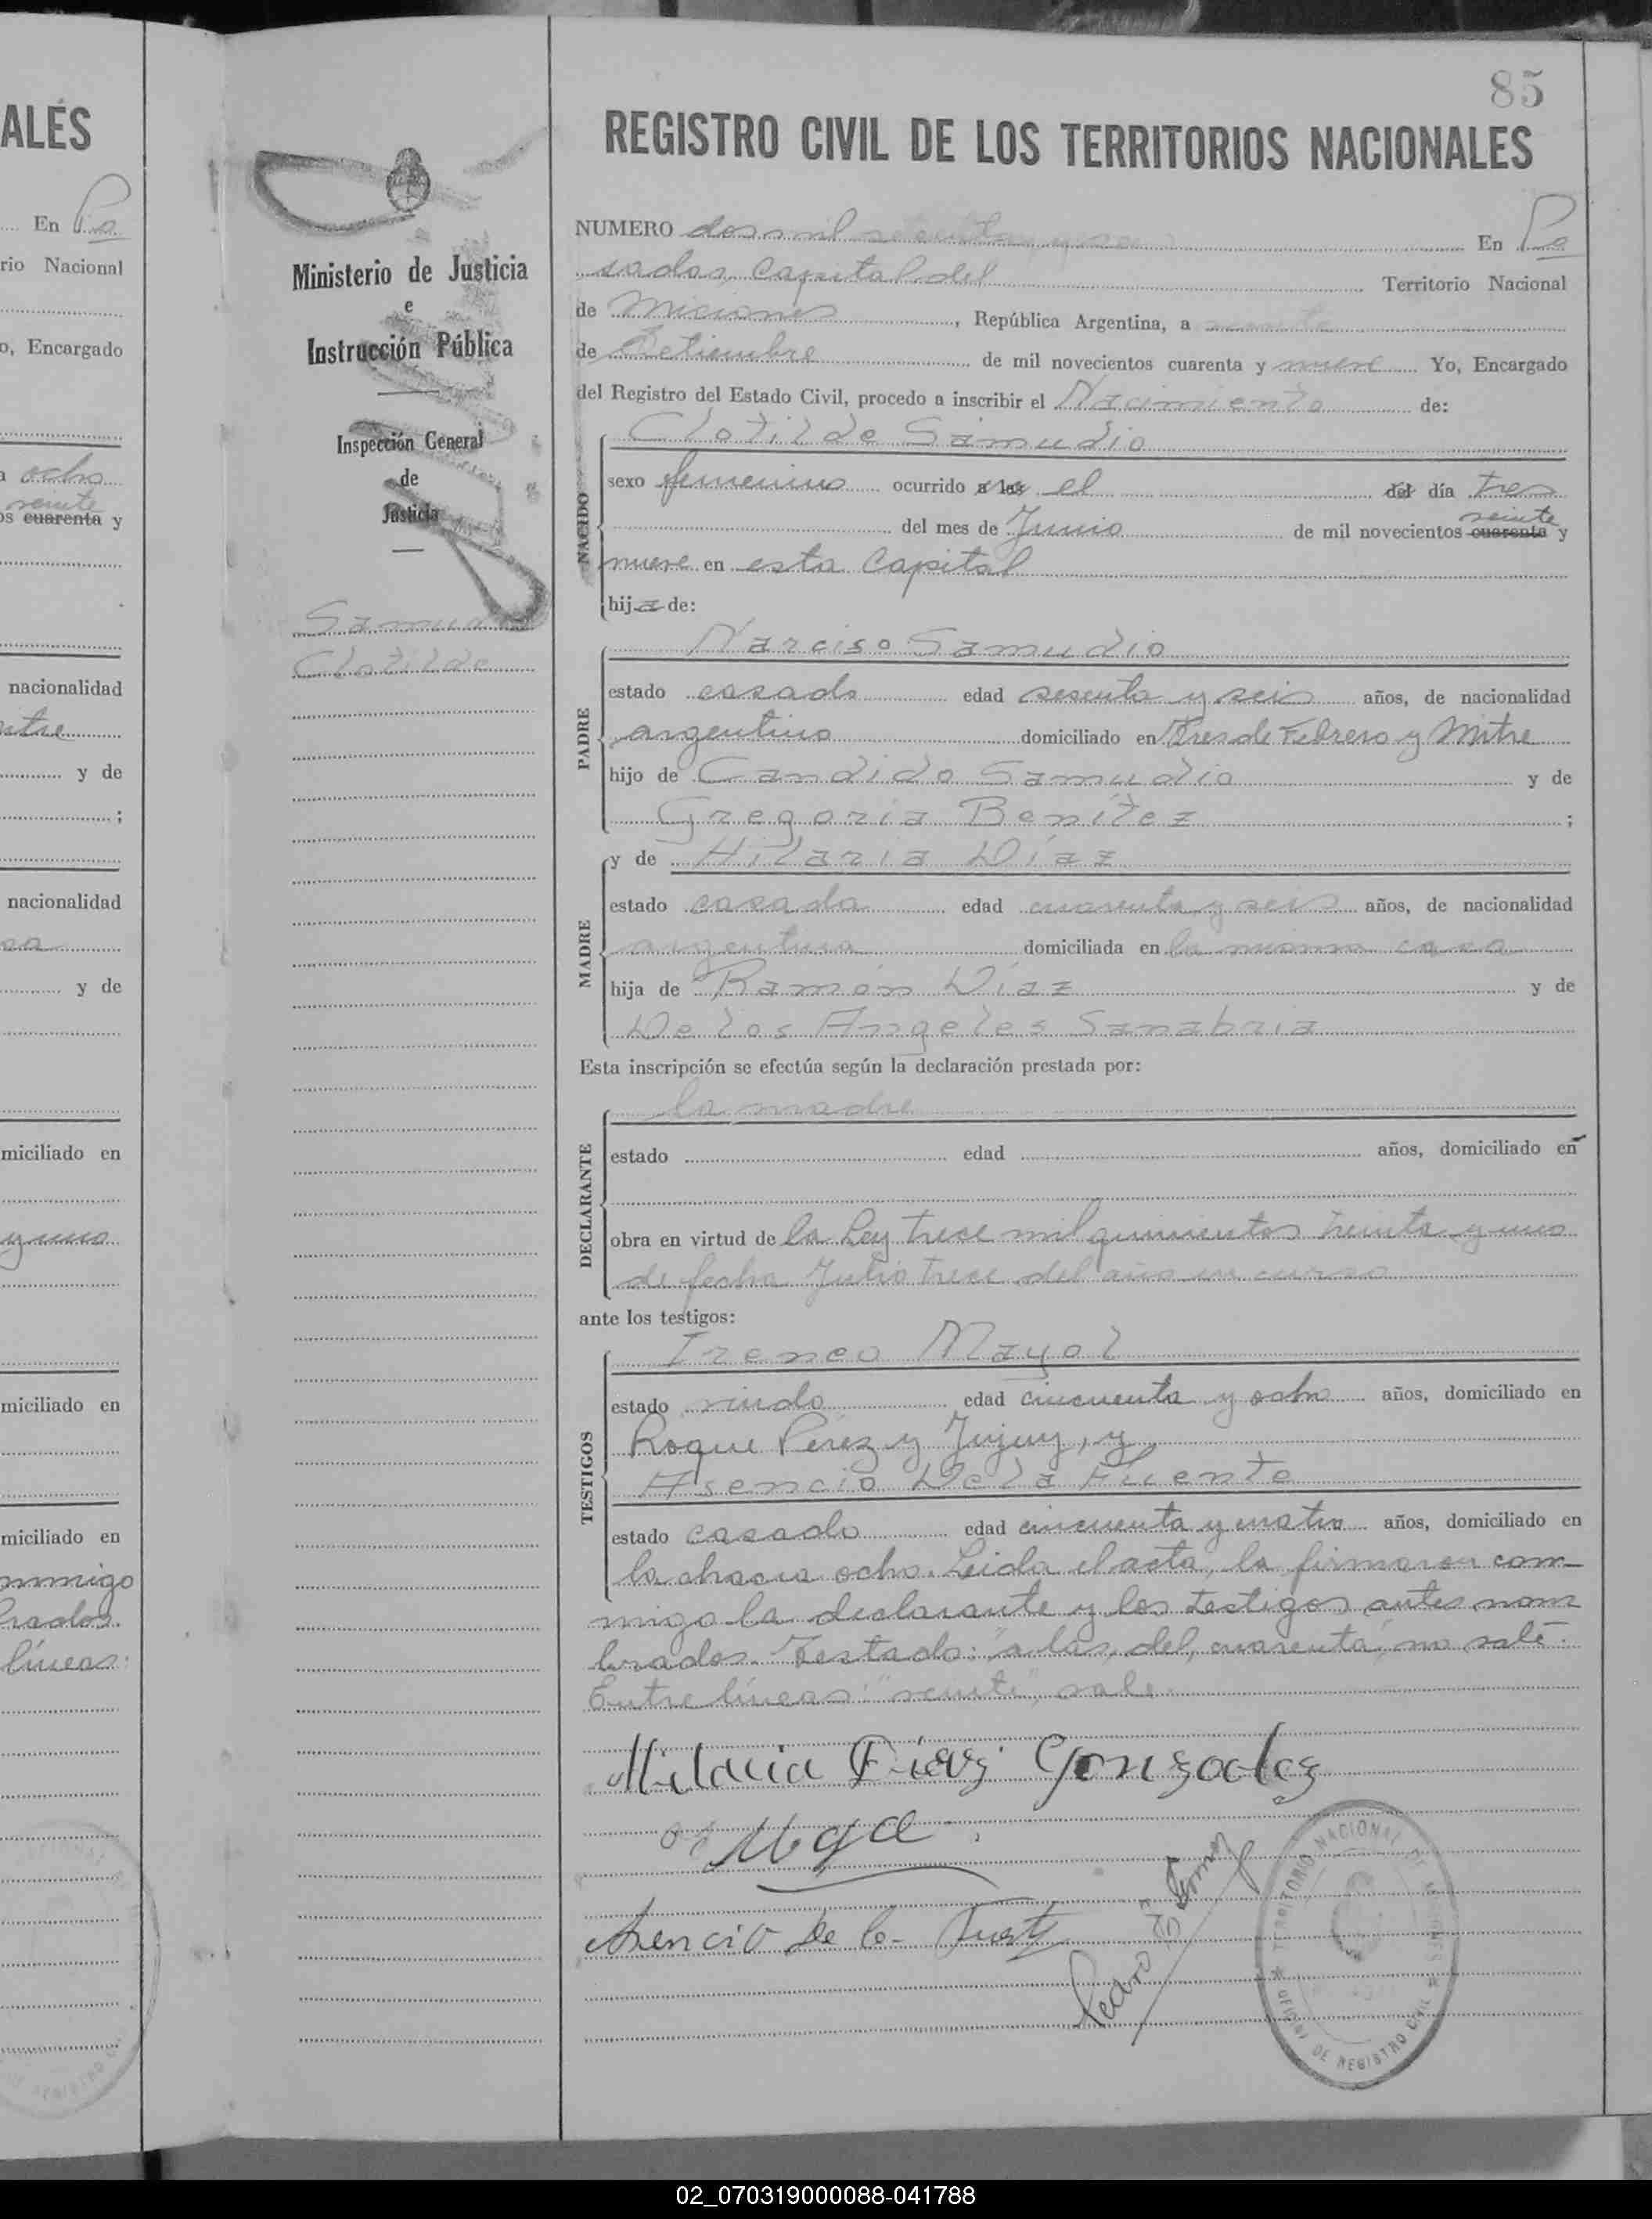 ALÉS
En Po
rio Nacional
o, Encargado
a ocho
veinte
os cuarenta y
nacionalidad
itre
y de
;
nacionalidad
sa
y de
miciliado en
y uno
miciliado en
miciliado en
nmigo
brados.
líneas:
Ministerio de Justicia
e
Instrucción Pública
Inspección General
de
Justicia
Samudio
Clotilde
85
REGISTRO CIVIL DE LOS TERRITORIOS NACIONALES
NUMERO dos mil En Po
sadas, Capital del Territorio Nacional
de Misiones, República Argentina, a
de Setiembre de mil novecientos cuarenta y nueve Yo, Encargado
del Registro del Estado Civil, procedo a inscribir el Nacimiento de:
NACIDO
Clotilde Samudio
sexo femenino ocurrido a las el del día tres
veinte
del mes de Junio de mil novecientos cuarenta y
nueve en esta Capital
hija de:
PADRE
Narciso Samudio
estado casado edad sesenta y seis años, de nacionalidad
argentino domiciliado en Tres de Febrero y Mitre
hijo de Candido Samudio y de
Gregoria Benítez ;
MADRE
y de Hilaria Díaz
estado casada edad cuarenta y seis años, de nacionalidad
argentina domiciliada en la misma casa
hija de Ramón Díaz y de
De los Angeles Sanabria
Esta inscripción se efectúa según la declaración prestada por:
DECLARANTE
la madre
estado edad años, domiciliado en
obra en virtud de la Ley trece mil quinientos treinta y uno
de fecha Julio trece del año en curso
ante los testigos:
TESTIGOS
Ireneo Mayol
estado viudo edad cincuenta y ocho años, domiciliado en
Roque Pérez y Jujuy, y
Asencio De la Fuente
estado casado edad cincuenta y cuatro años, domiciliado en
la chacra ocho. Leida el acta, la firmaron con-
migo la declarante y los testigos antes nom
brados. Testado: "a las, del, cuarenta", no vale.
Entre líneas: "veinte", vale.
Hilaria Diaz Gonzalez
Asencio De la Fuente
Pedro Gomez
TERRITORIO NACIONAL DE MISIONES
OFICINA DE REGISTRO CIVIL
NACIONAL
DE REGISTRO
02_070319000088-041788